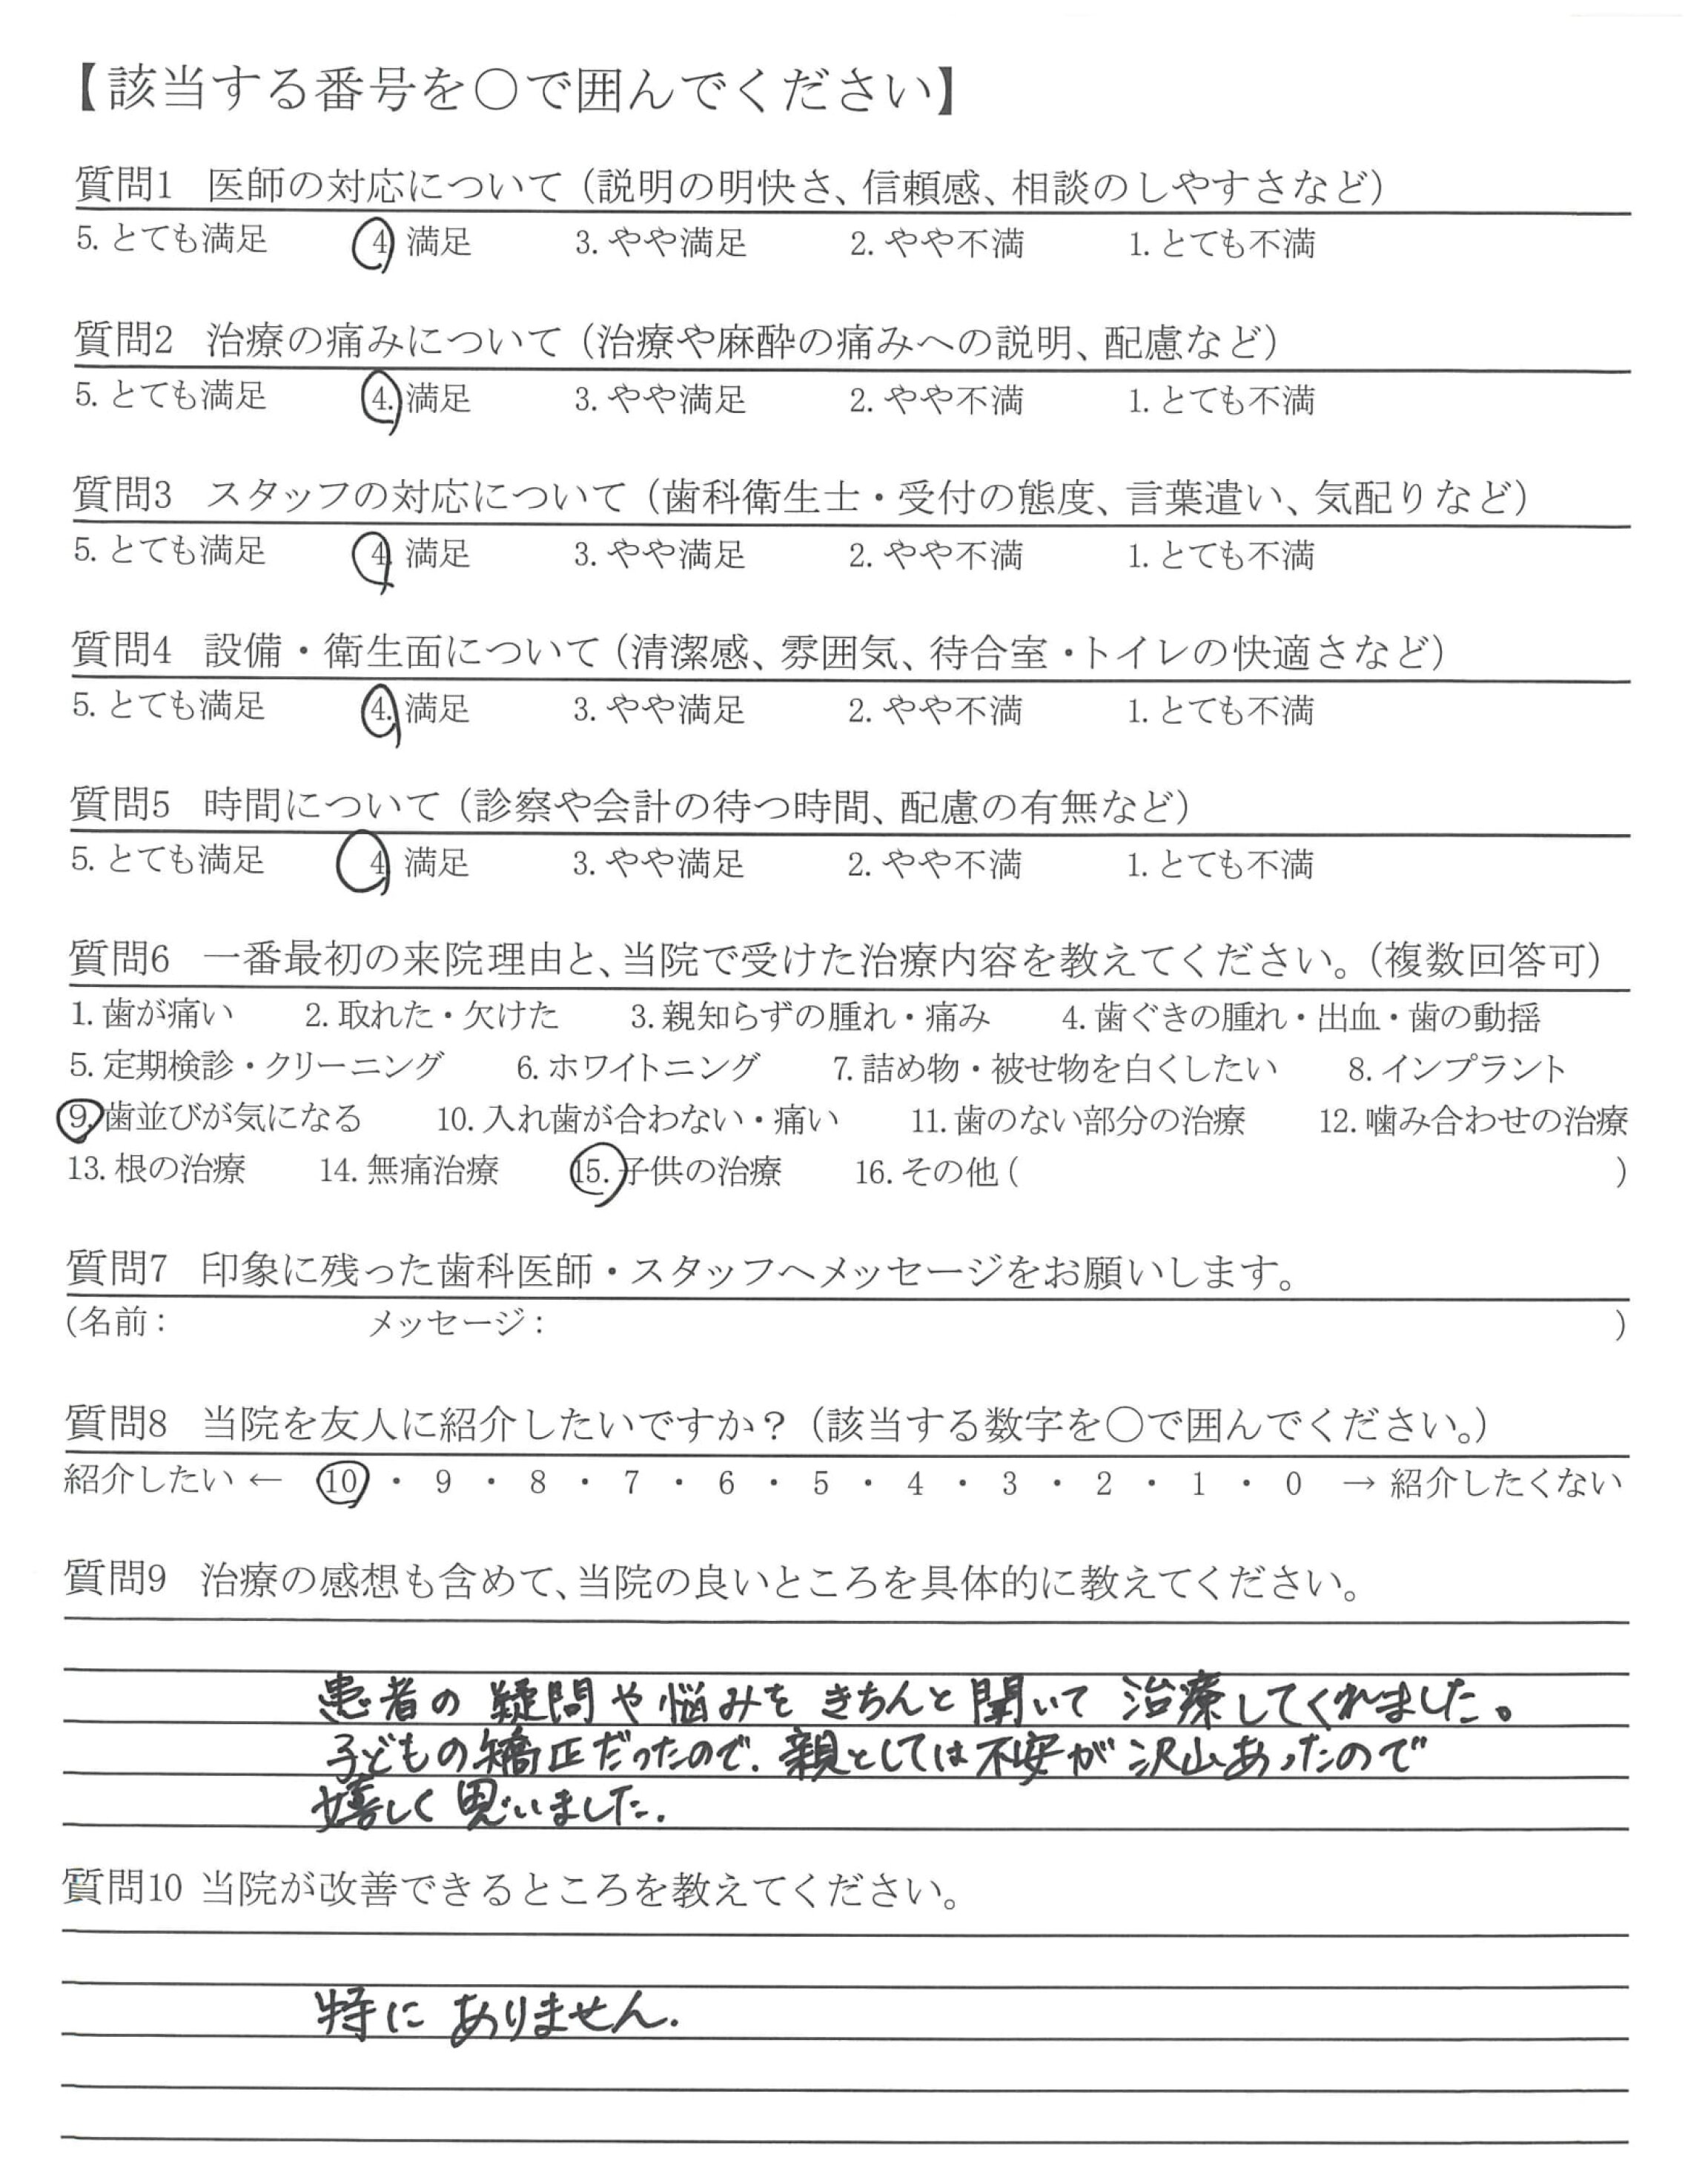 【該当する番号を○で囲んでください】
質問1 医師の対応について（説明の明快さ、信頼感、相談のしやすさなど）
5. とても満足 4. 満足 3. やや満足 2. やや不満 1. とても不満
質問2 治療の痛みについて（治療や麻酔の痛みへの説明、配慮など）
5. とても満足 4. 満足 3. やや満足 2. やや不満 1. とても不満
質問3 スタッフの対応について（歯科衛生士・受付の態度、言葉遣い、気配りなど）
5. とても満足 4. 満足 3. やや満足 2. やや不満 1. とても不満
質問4 設備・衛生面について（清潔感、雰囲気、待合室・トイレの快適さなど）
5. とても満足 4. 満足 3. やや満足 2. やや不満 1. とても不満
質問5 時間について（診察や会計の待つ時間、配慮の有無など）
5. とても満足 4. 満足 3. やや満足 2. やや不満 1. とても不満
質問6 一番最初の来院理由と、当院で受けた治療内容を教えてください。（複数回答可）
1. 歯が痛い 2. 取れた・欠けた 3. 親知らずの腫れ・痛み 4. 歯ぐきの腫れ・出血・歯の動揺
5. 定期検診・クリーニング 6. ホワイトニング 7. 詰め物・被せ物を白くしたい 8. インプラント
9. 歯並びが気になる 10. 入れ歯が合わない・痛い 11. 歯のない部分の治療 12. 噛み合わせの治療
13. 根の治療 14. 無痛治療 15. 子供の治療 16. その他（ ）
質問7 印象に残った歯科医師・スタッフへメッセージをお願いします。
（名前： メッセージ： ）
質問8 当院を友人に紹介したいですか？（該当する数字を○で囲んでください。）
紹介したい ← 10 ・ 9 ・ 8 ・ 7 ・ 6 ・ 5 ・ 4 ・ 3 ・ 2 ・ 1 ・ 0 → 紹介したくない
質問9 治療の感想も含めて、当院の良いところを具体的に教えてください。
患者の疑問や悩みをきちんと聞いて治療してくれました。
子どもの矯正だったので、親としては不安が沢山あったので
嬉しく思いました。
質問10 当院が改善できるところを教えてください。
特にありません。